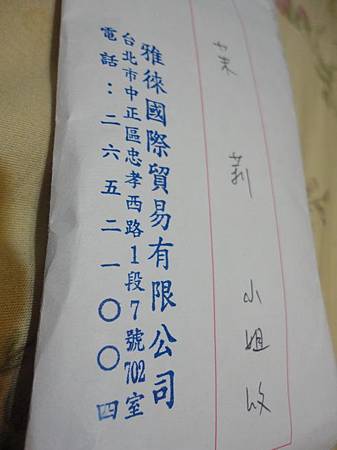 茉莉小姐收
雅徠國際貿易有限公司
台北市中正區忠孝西路1段7號702室
電話：二六五二一〇〇四